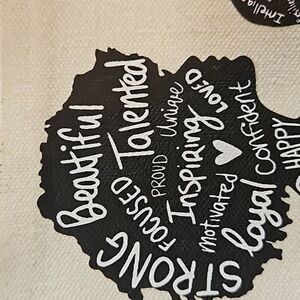 Beautiful
Talented
FOCUSED
PROUD
Unique
Inspiring
LOVED
STRONG
Motivated
loyal
Confident
HAPPY